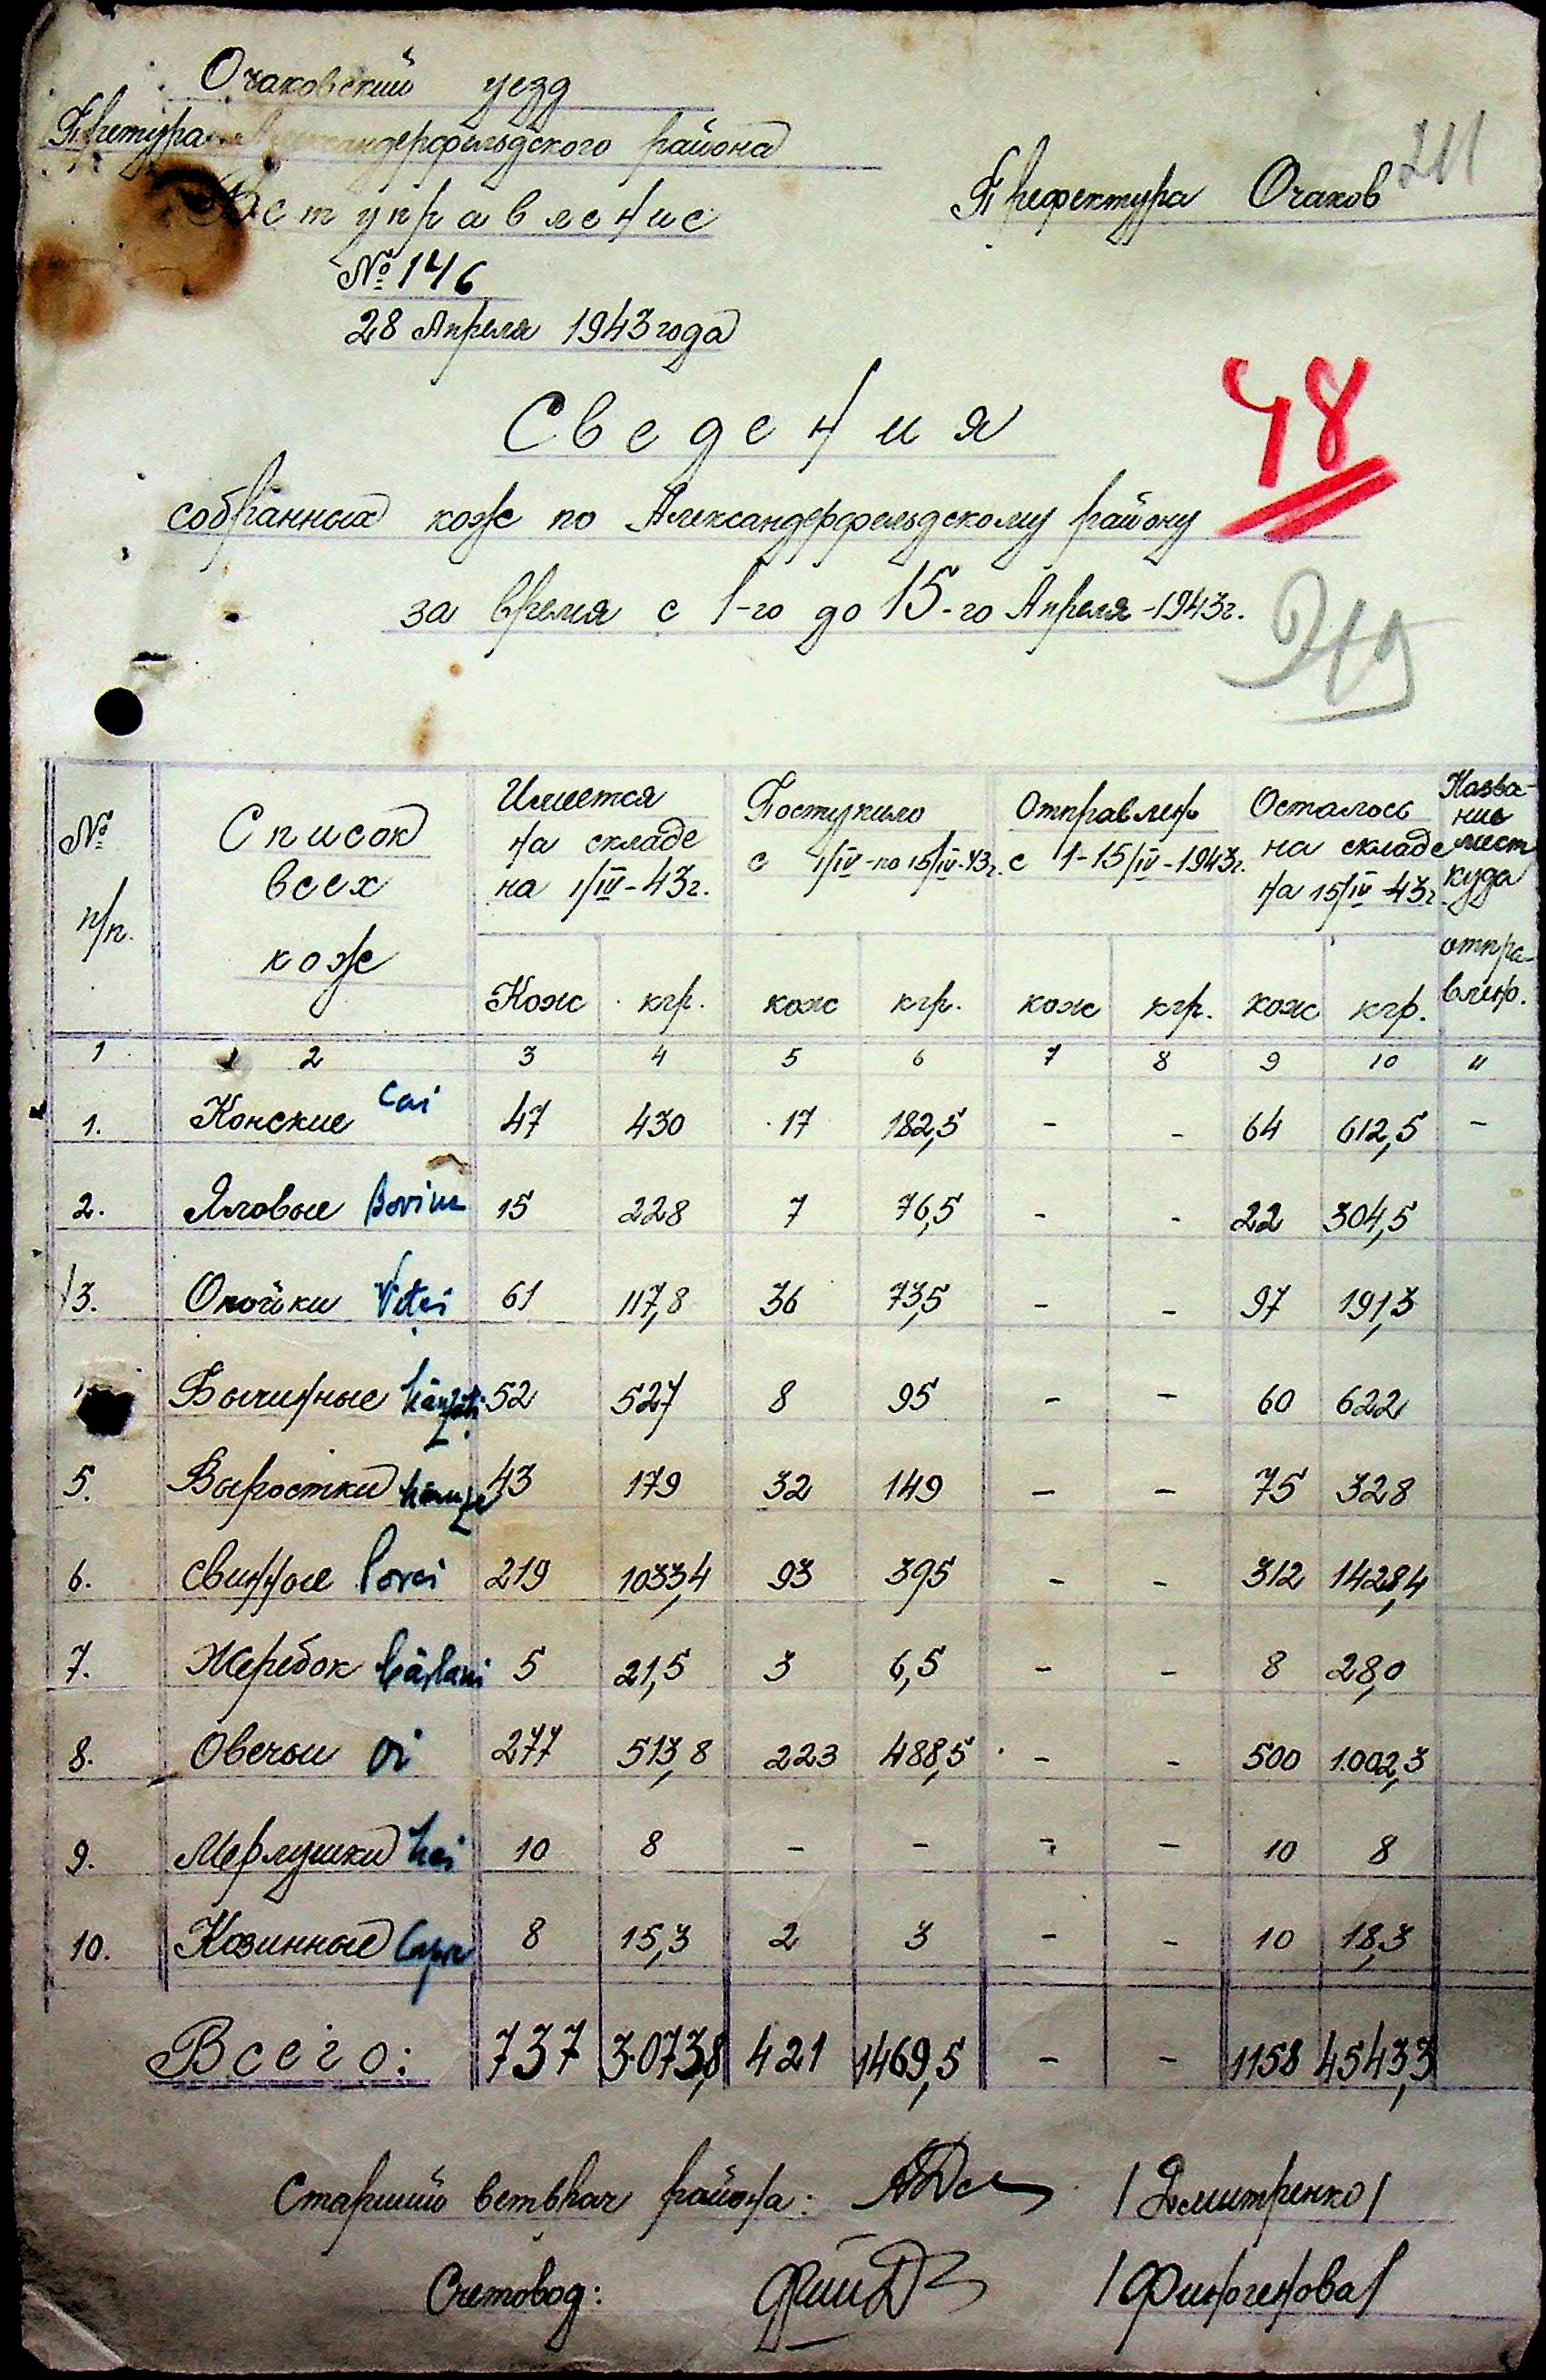 Очаковский уезд
Претура Александерфельдского района
Ветуправление
№ 146
28 Апреля 1943 года
211
Префектура Очаков
Сведения
48
собранных кож по Александерфельдскому району
за время с 1-го до 15-го Апреля-1943г.
№ п/п.
Список всех кож
Имеется на складе на 1/IV-43г.
Поступило с 1/IV-по 15/IV-43г.
Отправлено с 1-15/IV-1943г.
Осталось на складе на 15/IV-43г.
Название мест куда отправлено.
Кож кгр. кож кгр. кож кгр. кож кгр.
1 2 3 4 5 6 7 8 9 10 11
1. Конские Cai 47 430 17 182,5 - - 64 612,5 -
2. Яловые Bovine 15 228 7 76,5 - - 22 304,5
3. Опойки Viței 61 117,8 36 73,5 - - 97 191,3
Бычинные 52 527 8 95 - - 60 622
5. Выростки 43 179 32 149 - - 75 328
6. Свинные Porci 219 1033,4 93 395 - - 312 1428,4
7. Жеребок Cârlani 5 21,5 3 6,5 - - 8 28,0
8. Овечьи Oi 277 513,8 223 488,5 - - 500 1.002,3
9. Мерлушки 10 8 - - - - 10 8
10. Козинные Capre 8 15,3 2 3 - - 10 18,3
Всего: 737 3.073,8 421 1469,5 - - 1158 4543,3
Старший ветврач района: /Дмитренко/
Счетовод: /Финогенова/